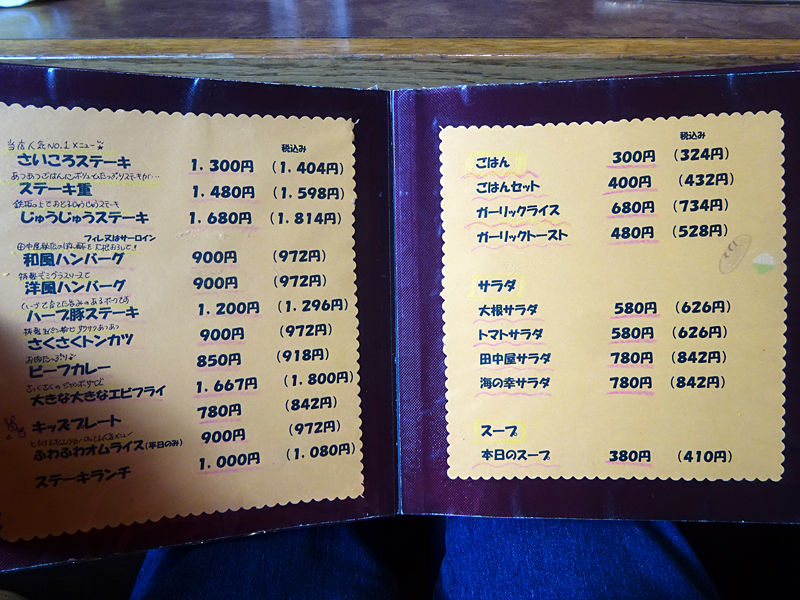 当店人気NO.1メニュー
税込み
さいころステーキ 1.300円 (1.404円)
ステーキ重 1.480円 (1.598円)
じゅうじゅうステーキ 1.680円 (1.814円)
フィレ又はサーロイン
和風ハンバーグ 900円 (972円)
洋風ハンバーグ 900円 (972円)
ハーブ豚ステーキ 1.200円 (1.296円)
さくさくトンカツ 900円 (972円)
お肉たっぷり
ビーフカレー 850円 (918円)
大きな大きなエビフライ 1.667円 (1.800円)
キッズプレート 780円 (842円)
ふわふわオムライス(本日のみ) 900円 (972円)
ステーキランチ 1.000円 (1.080円)
税込み
ごはん 300円 (324円)
ごはんセット 400円 (432円)
ガーリックライス 680円 (734円)
ガーリックトースト 480円 (528円)
サラダ
大根サラダ 580円 (626円)
トマトサラダ 580円 (626円)
田中屋サラダ 780円 (842円)
海の幸サラダ 780円 (842円)
スープ
本日のスープ 380円 (410円)